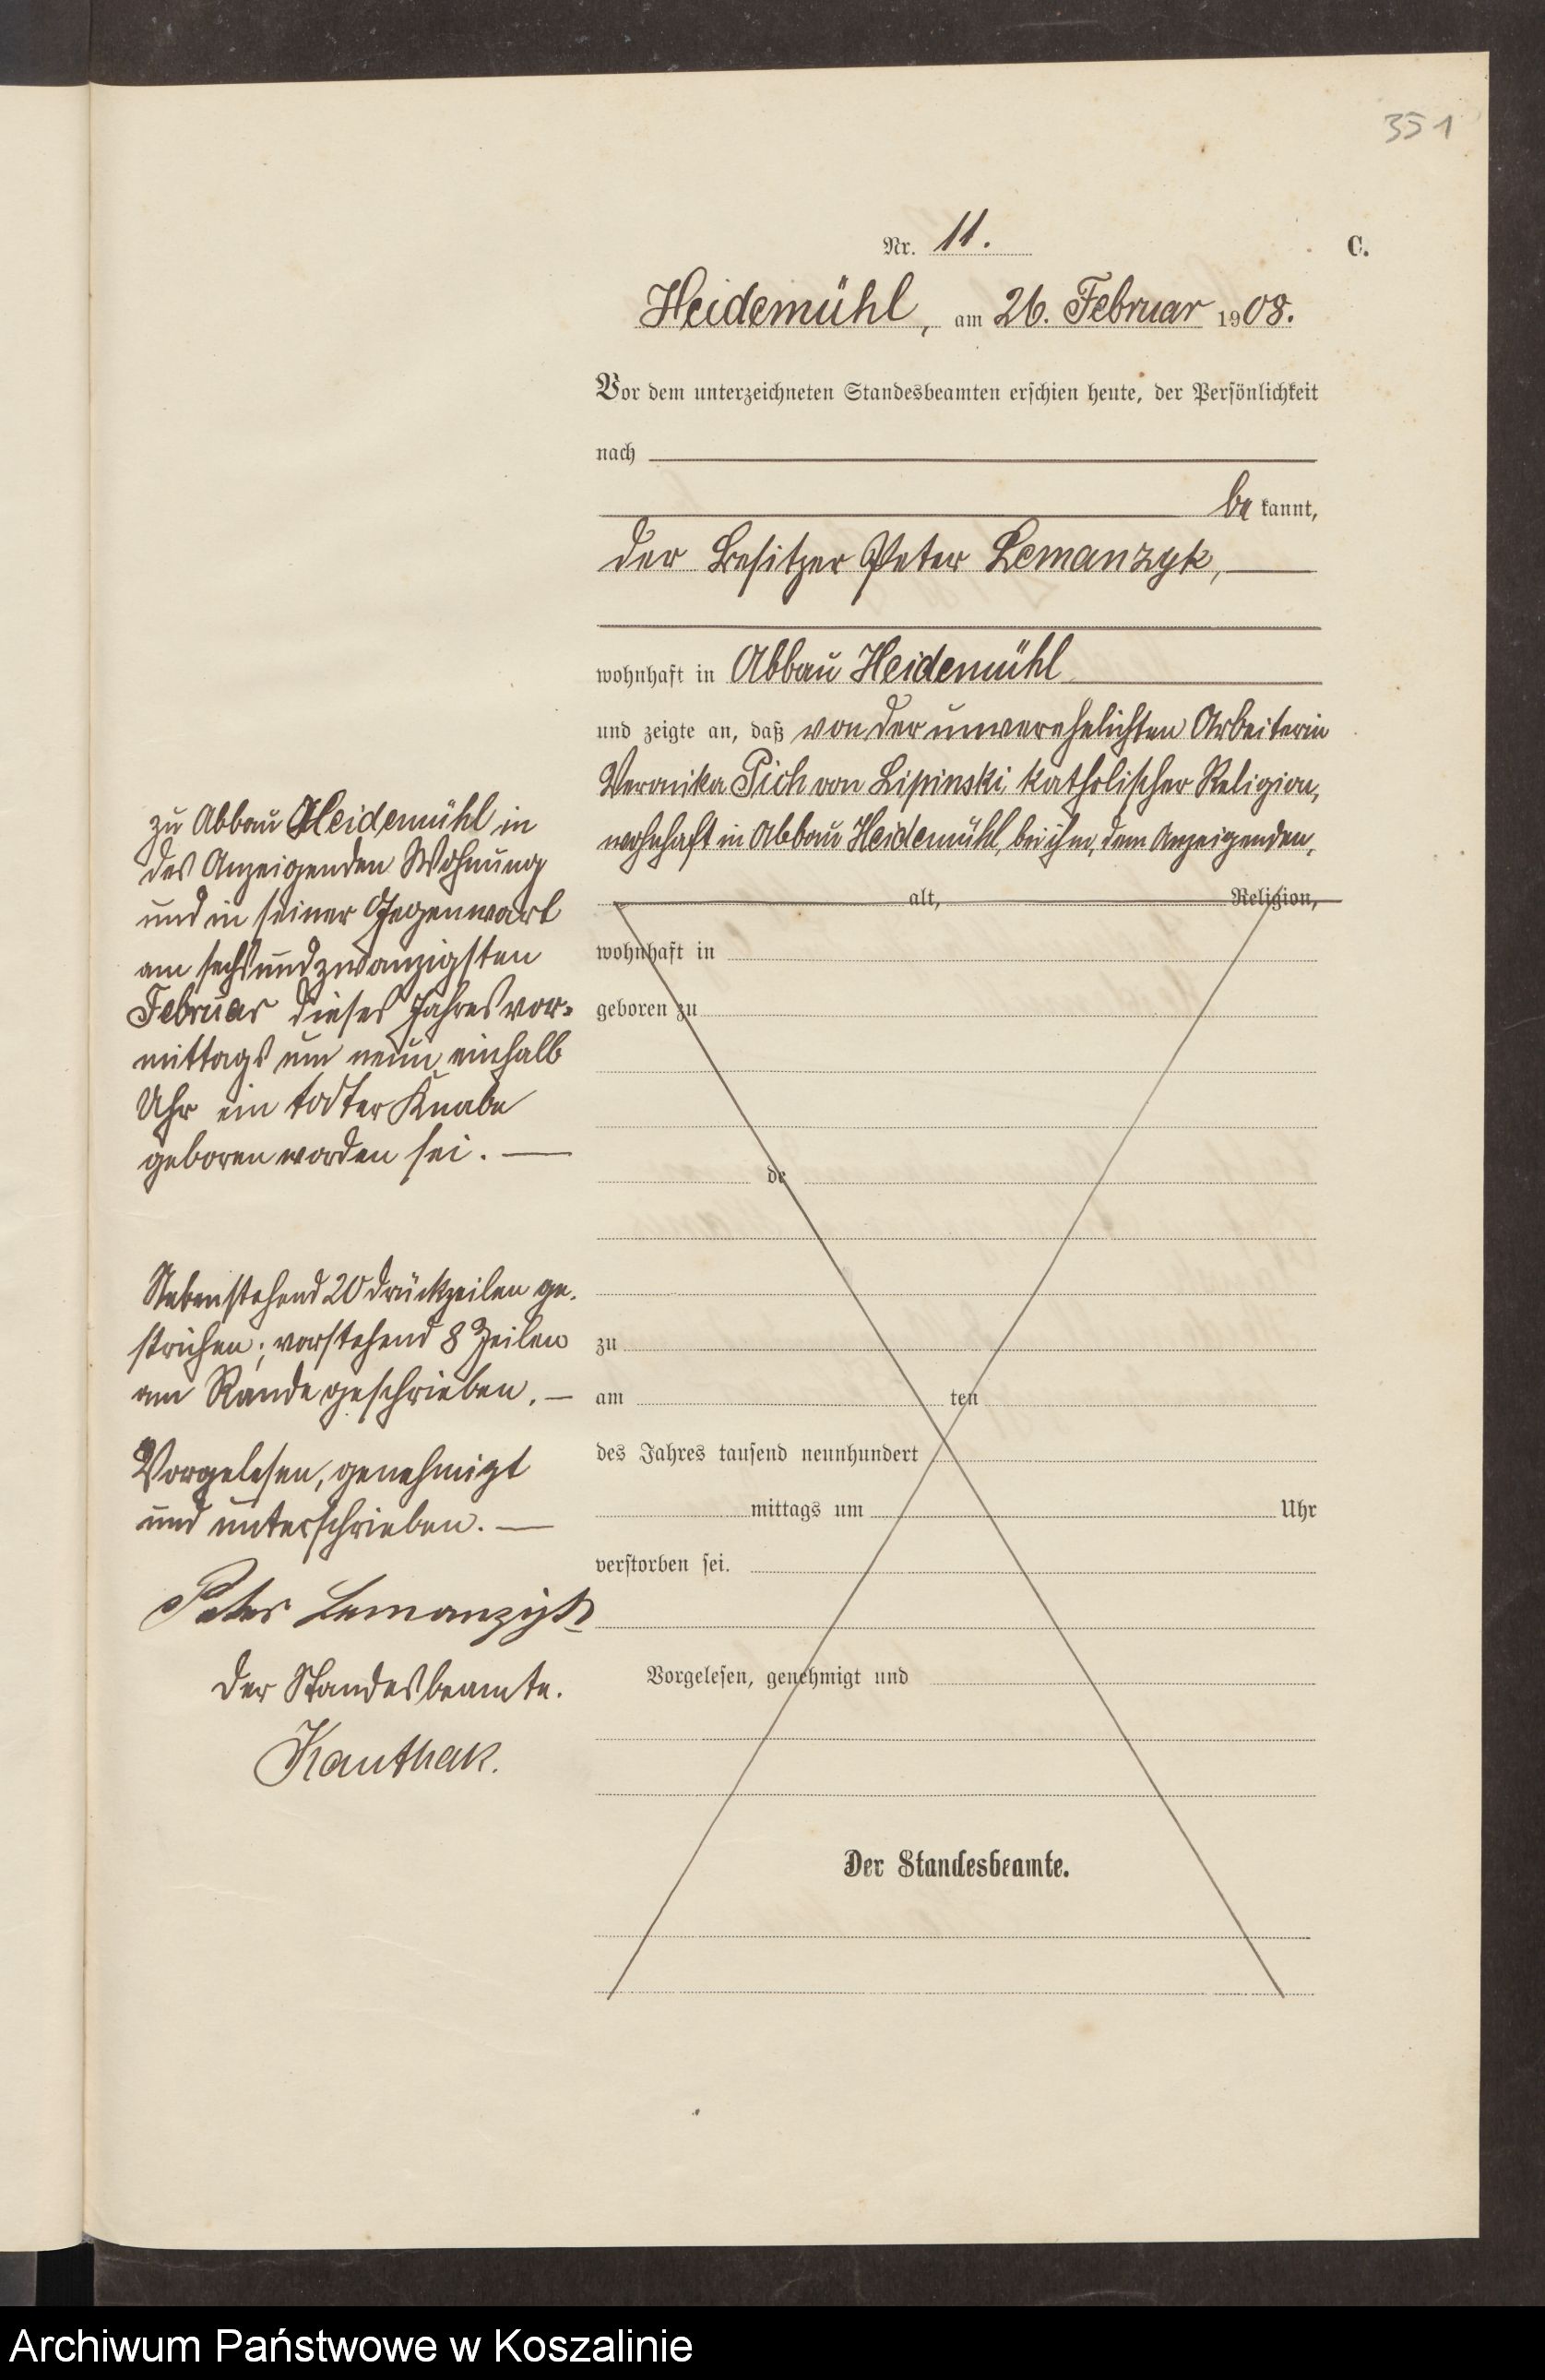 351
Nr. 11.
C.
Heidemühl, am 26. Februar 1908.
Vor dem unterzeichneten Standesbeamten erschien heute, der Persönlichkeit
nach
be kannt,
der Besitzer Peter Lemanzyk,
wohnhaft in Abbau Heidemühl
und zeigte an, daß von der unverehelichten Arbeiterin
Veronika Pich von Lipinski, katholischer Religion,
wohnhaft in Abbau Heidemühl, bei ihm, dem Anzeigenden,
zu Abbau Heidemühl in
des Anzeigenden Wohnung
und in seiner Gegenwart
am sechsundzwanzigsten
Februar dieses Jahres vor-
mittags um neun einhalb
Uhr ein todter Knabe
geboren worden sei.
Nebenstehend 20 Druckzeilen ge-
strichen; vorstehend 8 Zeilen
am Rande geschrieben.
Vorgelesen, genehmigt
und unterschrieben.
Peter Lemanzyk
Der Standesbeamte.
Kanthak.
alt, Religion,
wohnhaft in
geboren zu
de
zu
am ten
des Jahres tausend neunhundert
mittags um Uhr
verstorben sei.
Vorgelesen, genehmigt und
Der Standesbeamte.
Archiwum Państwowe w Koszalinie